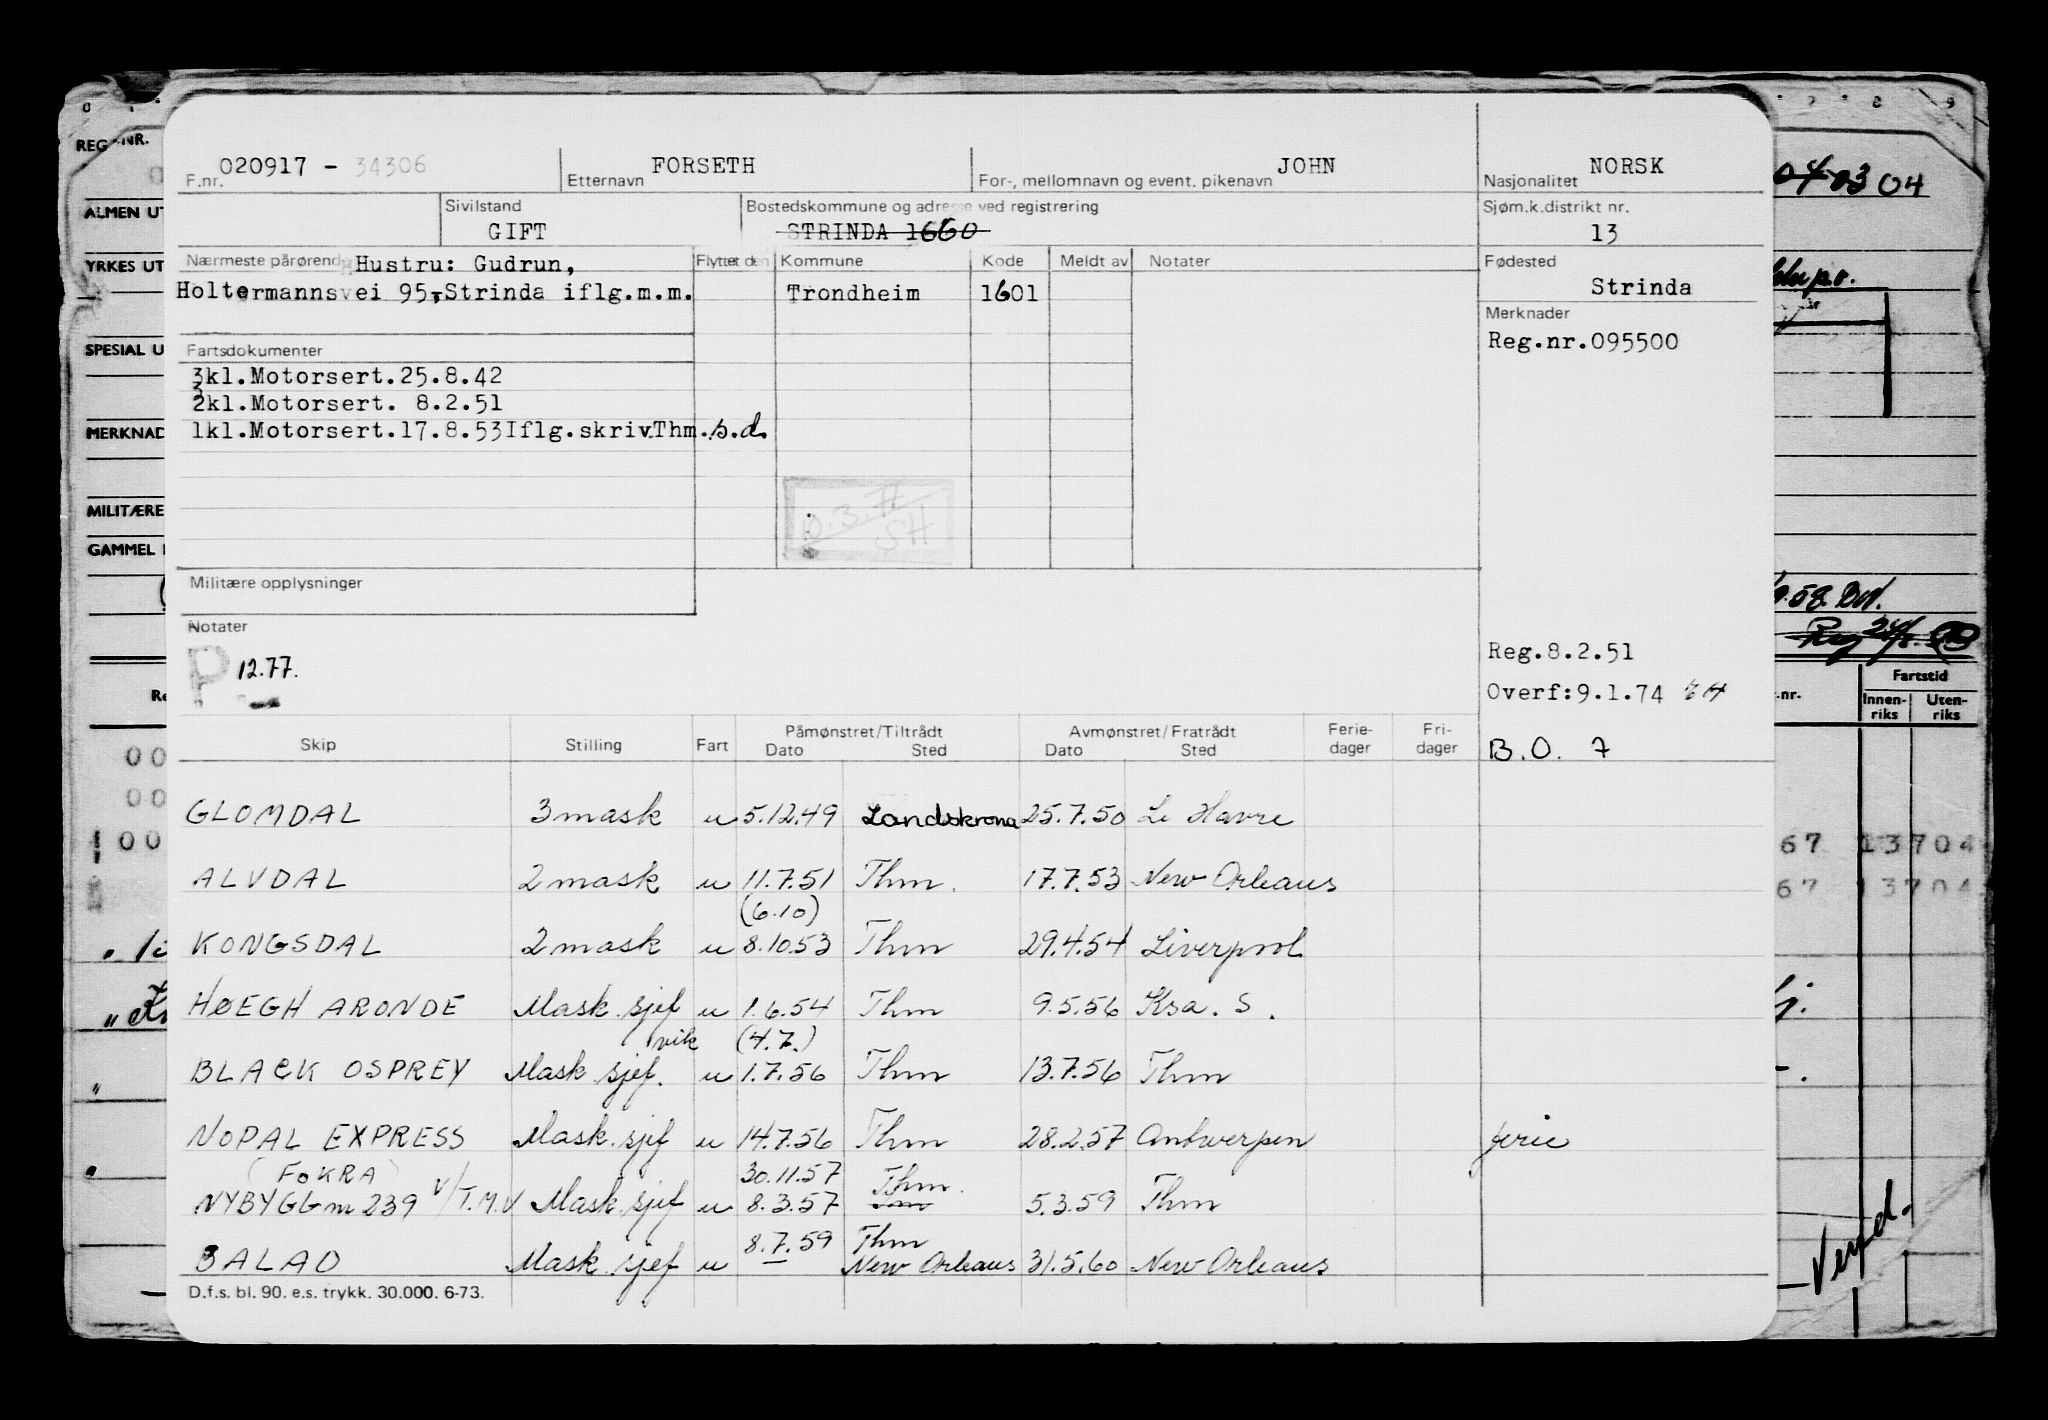 020917 - 34306 FORSETH JOHN NORSK
F.nr. Etternavn For-, mellomnavn og event. pikenavn Nasjonalitet
Sivilstand Bostedskommune og adresse ved registrering Sjøm.k.distrikt nr.
GIFT STRINDA 1660 13
Nærmeste pårørende Hustru: Gudrun, Flyttet den Kommune Kode Meldt av Notater Fødested
Holtermannsvei 95, Strinda iflg.m.m. Trondheim 1601 Strinda
Merknader
Reg.nr.095500
Fartsdokumenter
3kl.Motorsert.25.8.42
2kl.Motorsert. 8.2.51
1kl.Motorsert.17.8.53Iflg.skriv.Thm.s.d.
SH
Militære opplysninger
Notater
P 12.77.
Reg.8.2.51
Overf:9.1.74
B.O. 7
Skip Stilling Fart Påmønstret/Tiltrådt Avmønstret/Fratrådt Ferie- Fri-
Dato Sted Dato Sted dager dager
GLOMDAL 3 mask u 5.12.49 Landskrona 25.7.50 Le Havre
ALVDAL 2 mask u 11.7.51 Thm. 17.7.53 New Orleans
(6.10)
KONGSDAL 2 mask u 8.10.53 Thm 29.4.54 Liverpool
HØEGH ARONDE Mask.sjef u 1.6.54 Thm 9.5.56 Ksa. S.
vik (4.7.)
BLACK OSPREY Mask.sjef. u 1.7.56 Thm 13.7.56 Thm
NOPAL EXPRESS Mask.sjef u 14.7.56 Thm 28.2.57 Antwerpen ferie
(FOKRA) 30.11.57 Thm.
NYBYGG nr 239 v/T.M.V Mask.sjef u 8.3.57 Thm 5.3.59 Thm
8.7.59 Thm
BALAO Mask.sjef u — New Orleans 31.5.60 New Orleans
D.f.s. bl. 90. e.s. trykk. 30.000. 6-73.
REG.-NR.
ALMEN UT
YRKES UT
SPESIAL U
MERKNAD
MILITÆRE
GAMMEL
00
00
00
03 04
.58.
Reg 24/8.
Fartstid
.nr. Innen-riks Uten-riks
67 13704
67 13704